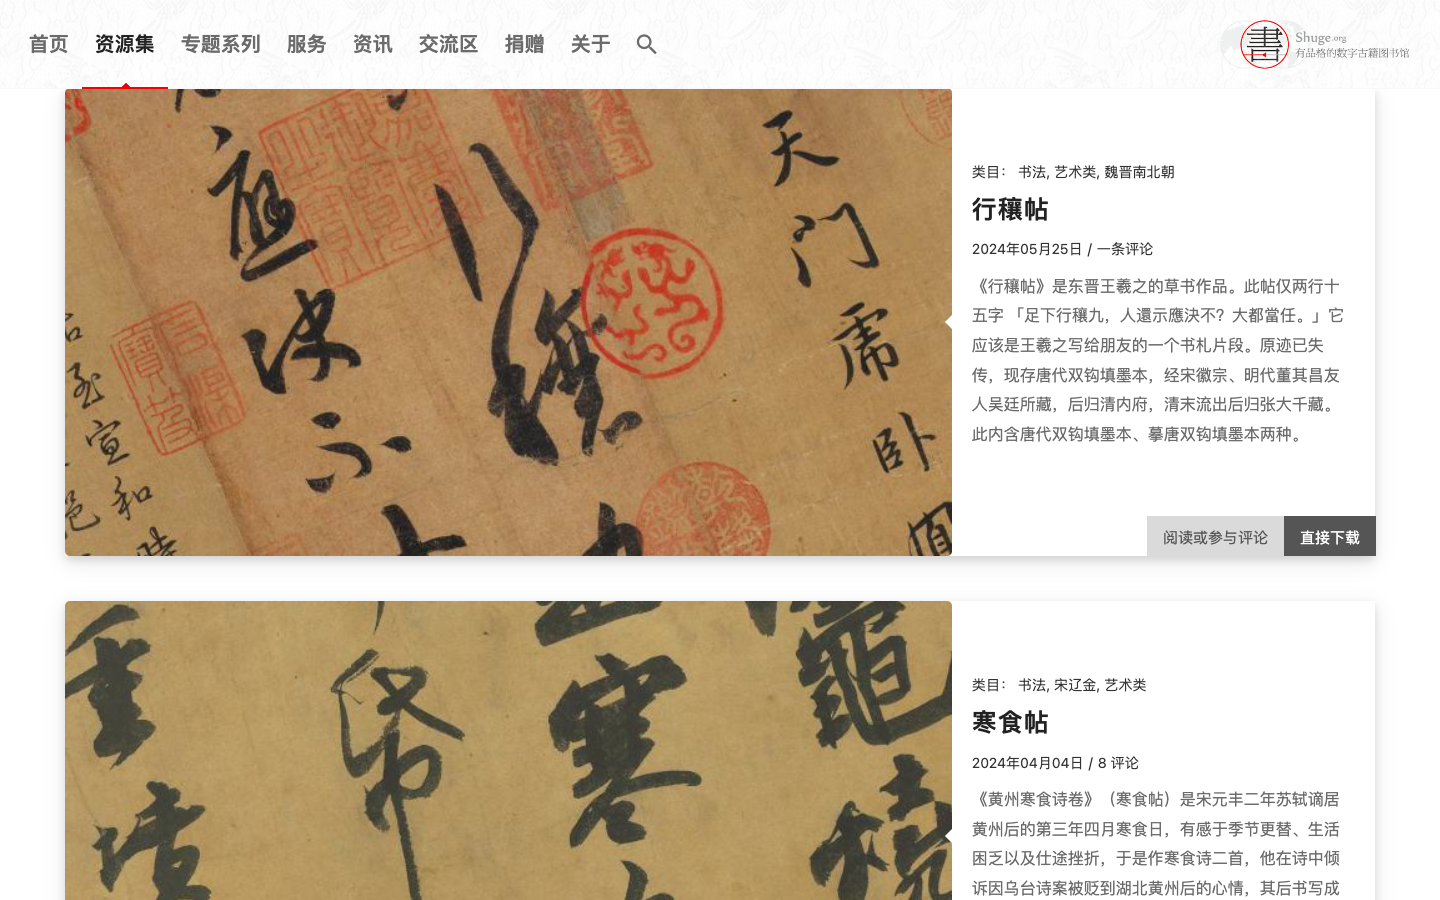 首页 资源集 专题系列 服务 资讯 交流区 捐赠 关于
書 Shuge.org
有品格的数字古籍图书馆
天
門
需
臥
應
決
不
大
行
穰
宣
和
类目： 书法, 艺术类, 魏晋南北朝
行穰帖
2024年05月25日 / 一条评论
《行穰帖》是东晋王羲之的草书作品。此帖仅两行十
五字 「足下行穰九，人還示應決不？大都當任。」它
应该是王羲之写给朋友的一个书札片段。原迹已失
传，现存唐代双钩填墨本，经宋徽宗、明代董其昌友
人吴廷所藏，后归清内府，清末流出后归张大千藏。
此内含唐代双钩填墨本、摹唐双钩填墨本两种。
阅读或参与评论 直接下载
竈
寒
燒
重
墳
类目： 书法, 宋辽金, 艺术类
寒食帖
2024年04月04日 / 8 评论
《黄州寒食诗卷》（寒食帖）是宋元丰二年苏轼谪居
黄州后的第三年四月寒食日，有感于季节更替、生活
困乏以及仕途挫折，于是作寒食诗二首，他在诗中倾
诉因乌台诗案被贬到湖北黄州后的心情，其后书写成